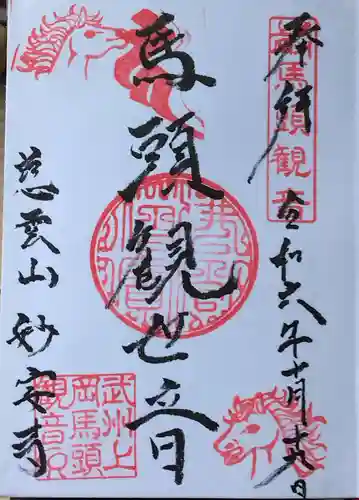 奉拝
令和六年十月十九日
馬頭観世音
慈雲山 妙安寺
武州上
岡馬頭
観音印